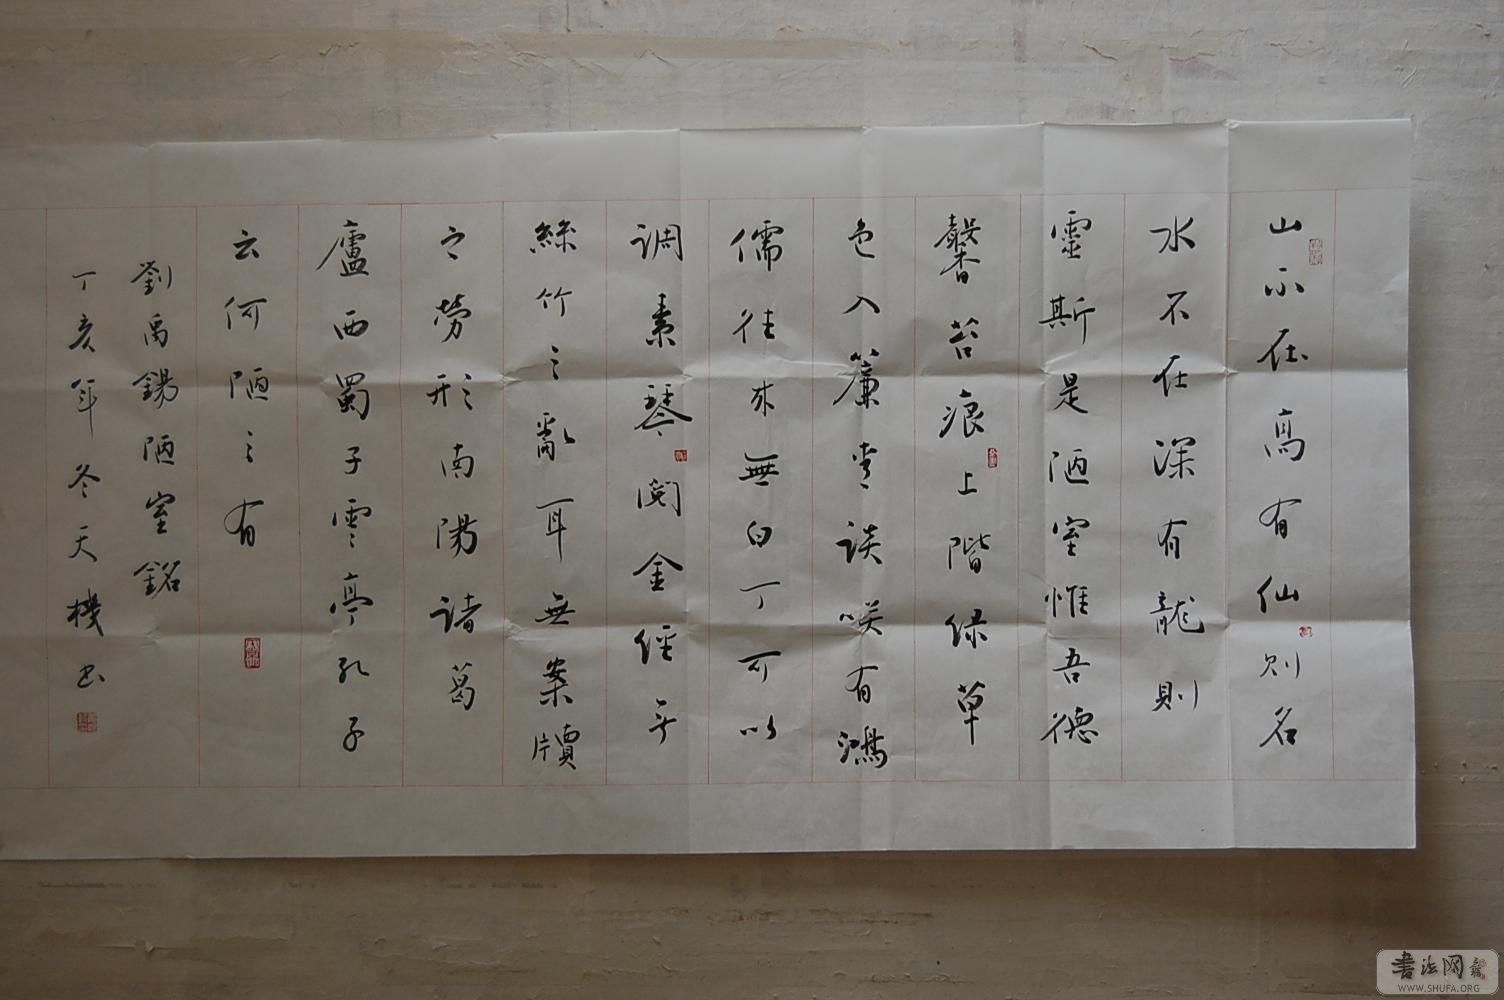 山不在高有仙则名
水不在深有龍則
靈斯是陋室惟吾德
馨苔痕上階绿草
色入簾青談咲有鴻
儒往来無白丁可以
調素琴閱金經无
絲竹之亂耳無案牘
之勞形南陽諸葛
廬西蜀子雲亭孔子
云何陋之有
劉禹錫陋室銘
丁亥年冬天機书
書法网
WWW.SHUFA.ORG